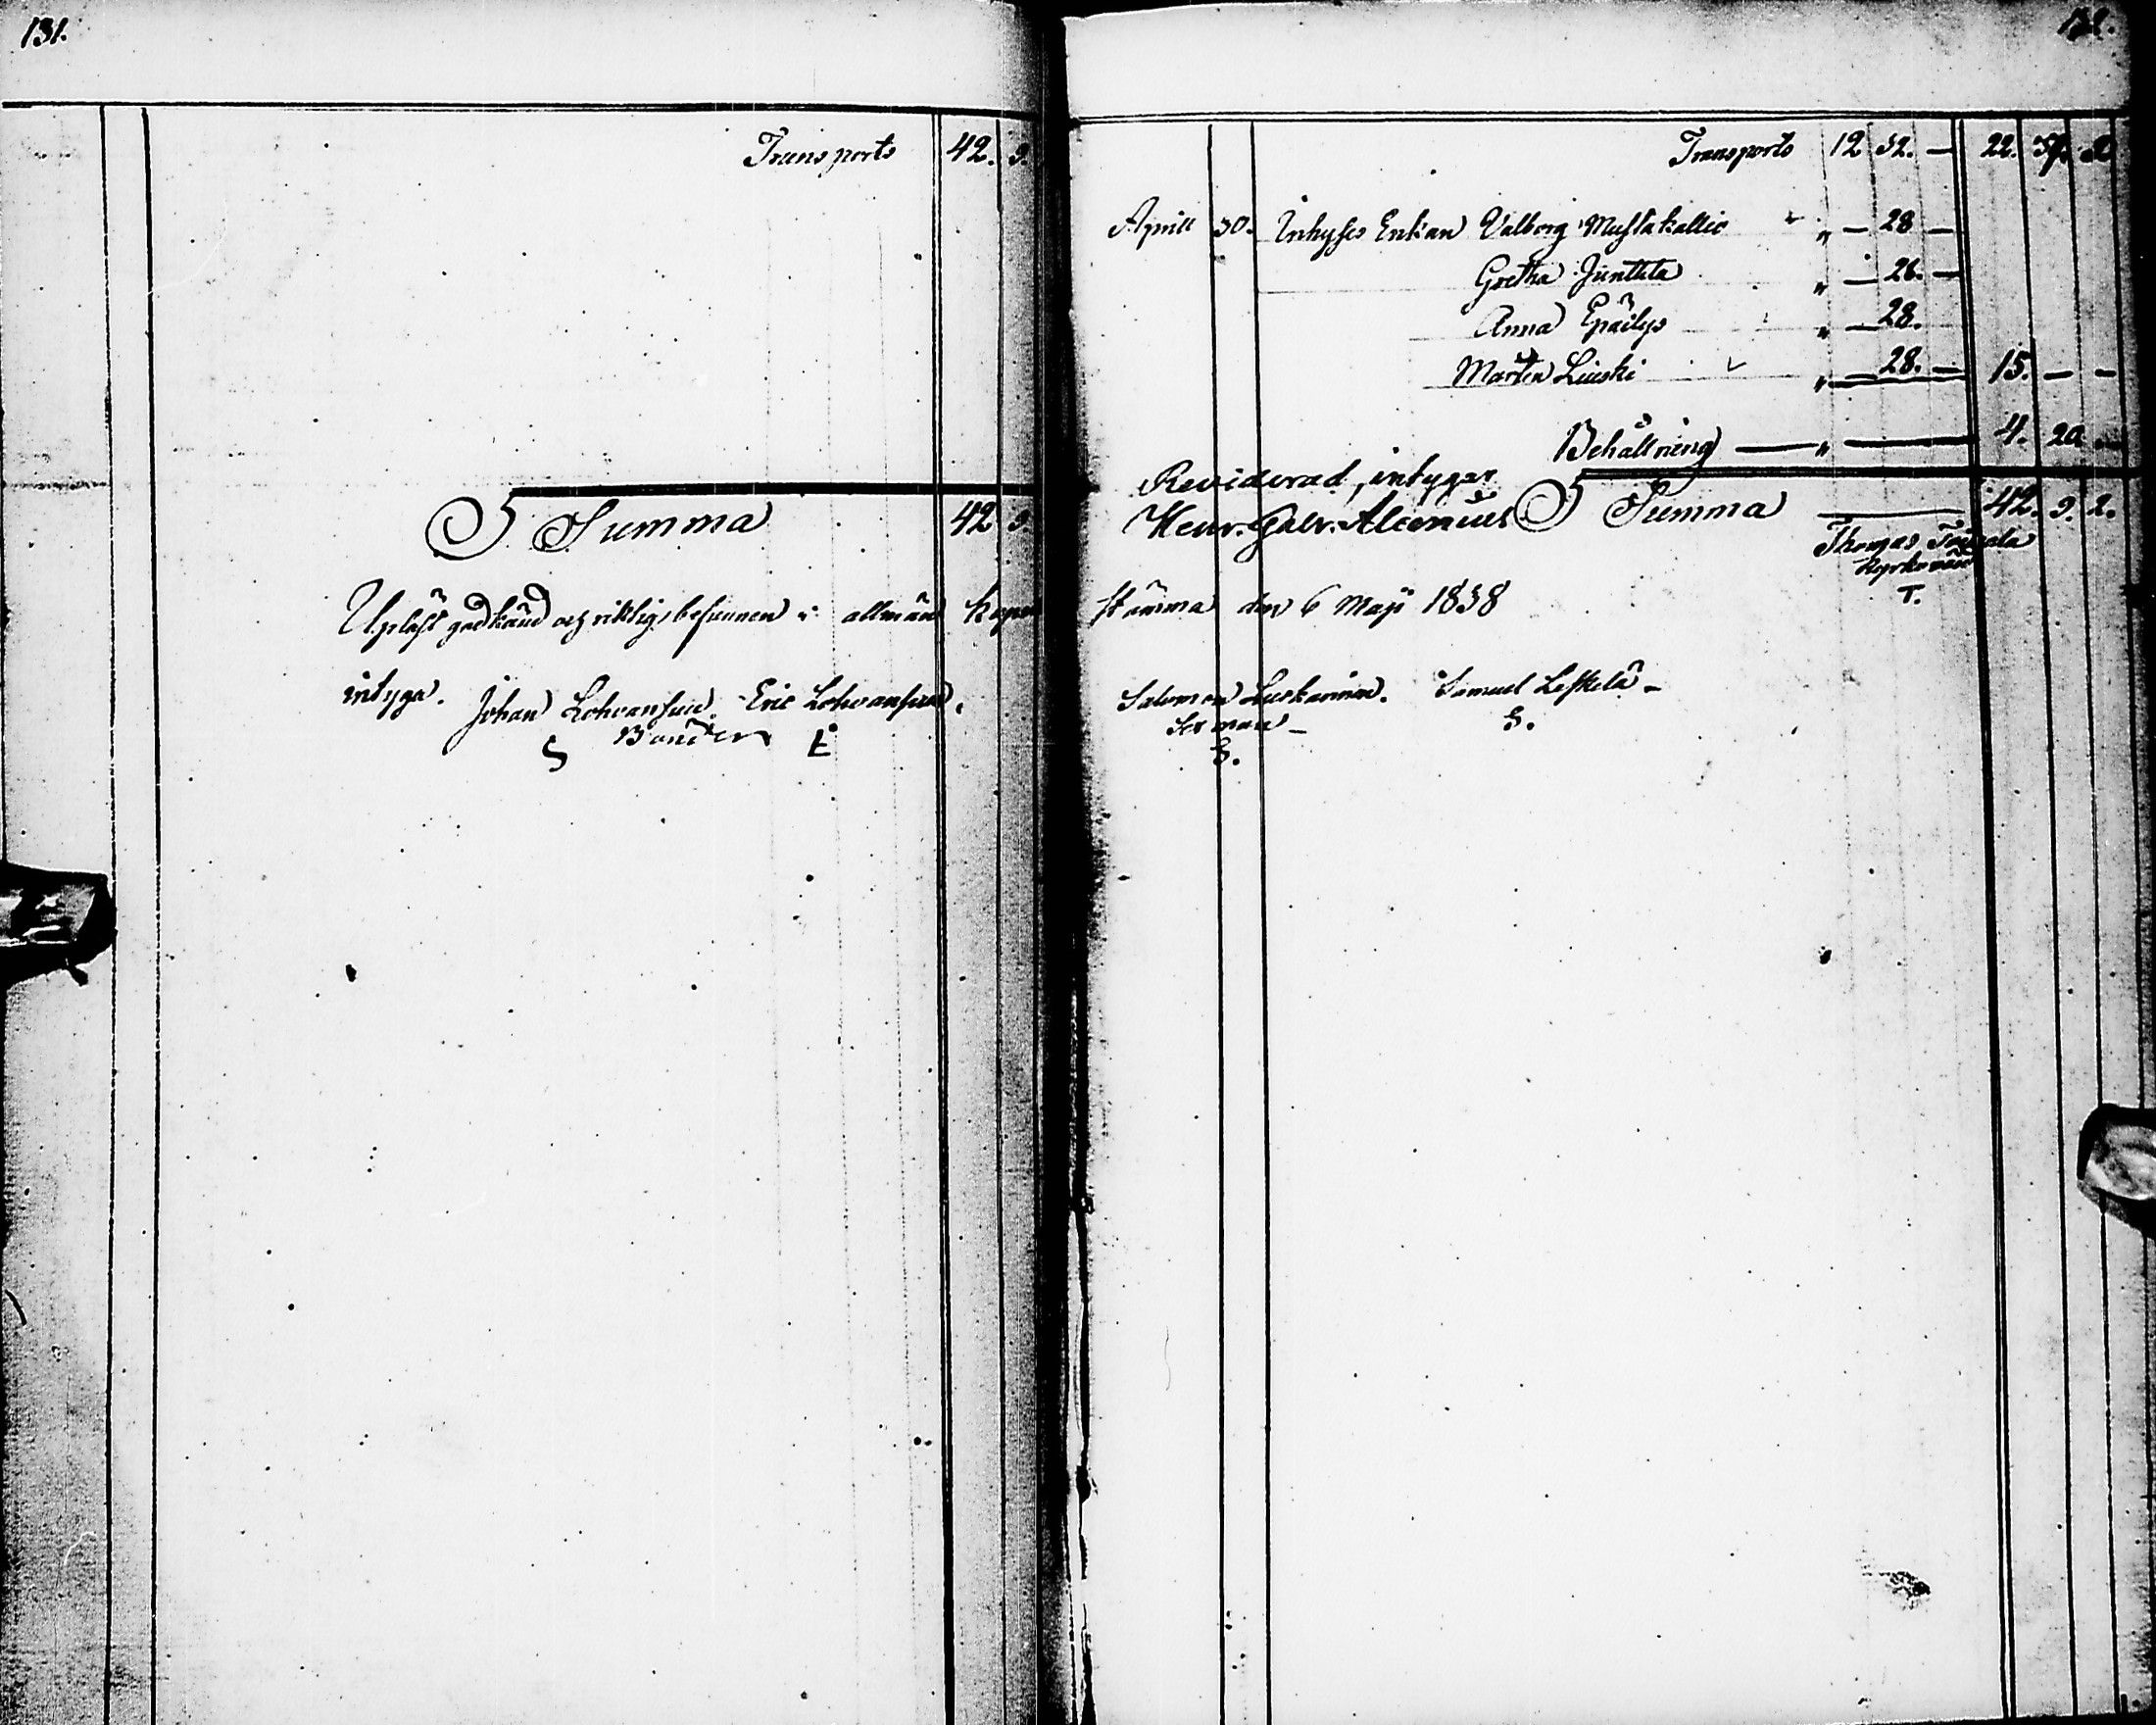 131.
Transports 42. 9.
S Summa 42 9.
Upläst godkänd och riktig befunnen i allmän kapell
intyga. Johan Lohvansuu. Eric Lohvansuu.
Bönder
132.
Transports 12 32. — 22. 37. 2
Aprill 30. Inhyses Enkan Valborg Mustakallio " — 28 —
Gretha Junttila " — 28. —
Anna Epäilys " — 28.
Marten Liuski " — 28. — 15. — —
Behållning — " — 4. 20 —
Reviderad, intygar
Henr. Gabr. Alcenius S Summa — 42. 9. 2.
Thomas
Kyrkovärd
T.
stämma den 6 Maji 1838
Salomon Samuel Leskelä
Sexman
S. S.